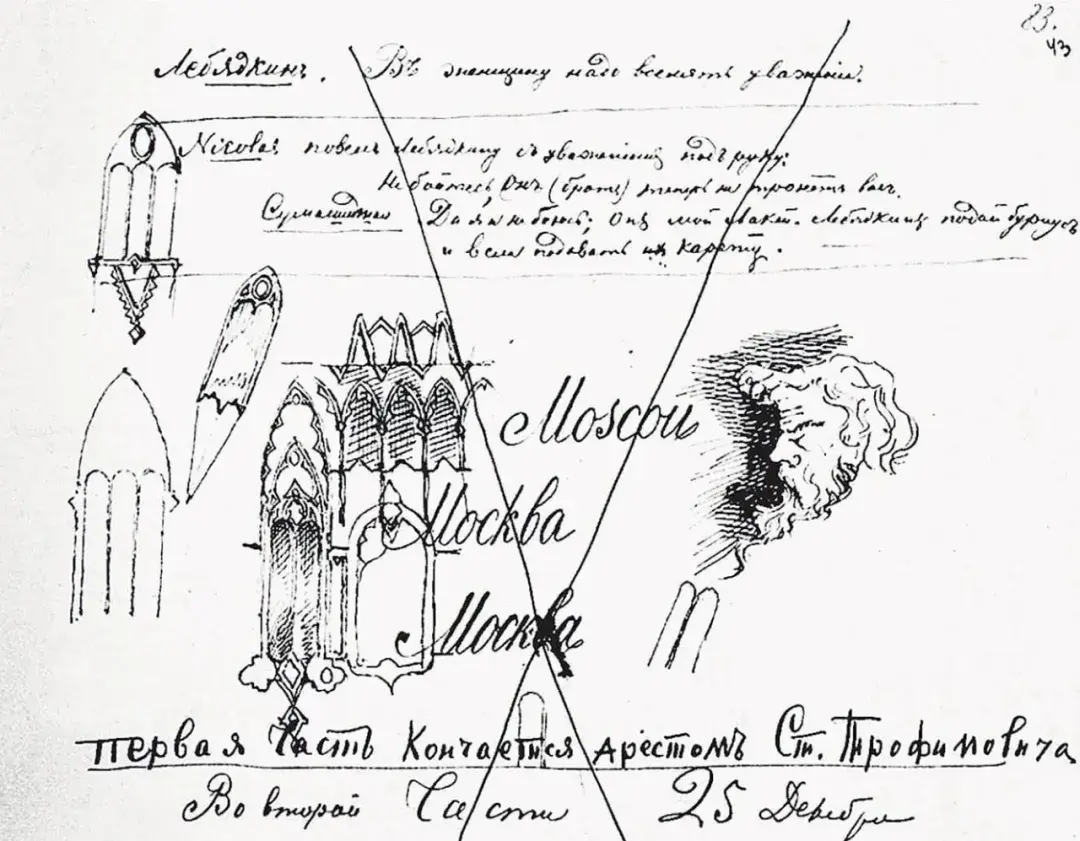 83.
43
Лебядкинъ. Въ женщину надо вселять уваженіе.
Nicolas повелъ Лебядкину съ уваженіемъ подъ руку:
Не бойтесь, Онъ (братъ) теперь не тронетъ васъ.
Сумасшедшая Да я не боюсь; Онъ мой лакей. Лебядкинъ подай бурнусъ
и вели подавать карету.
Moscou
Москва
Москва
Первая Часть Кончается арестомъ Ст. Трофимовича
Во второй Части 25 Декабря